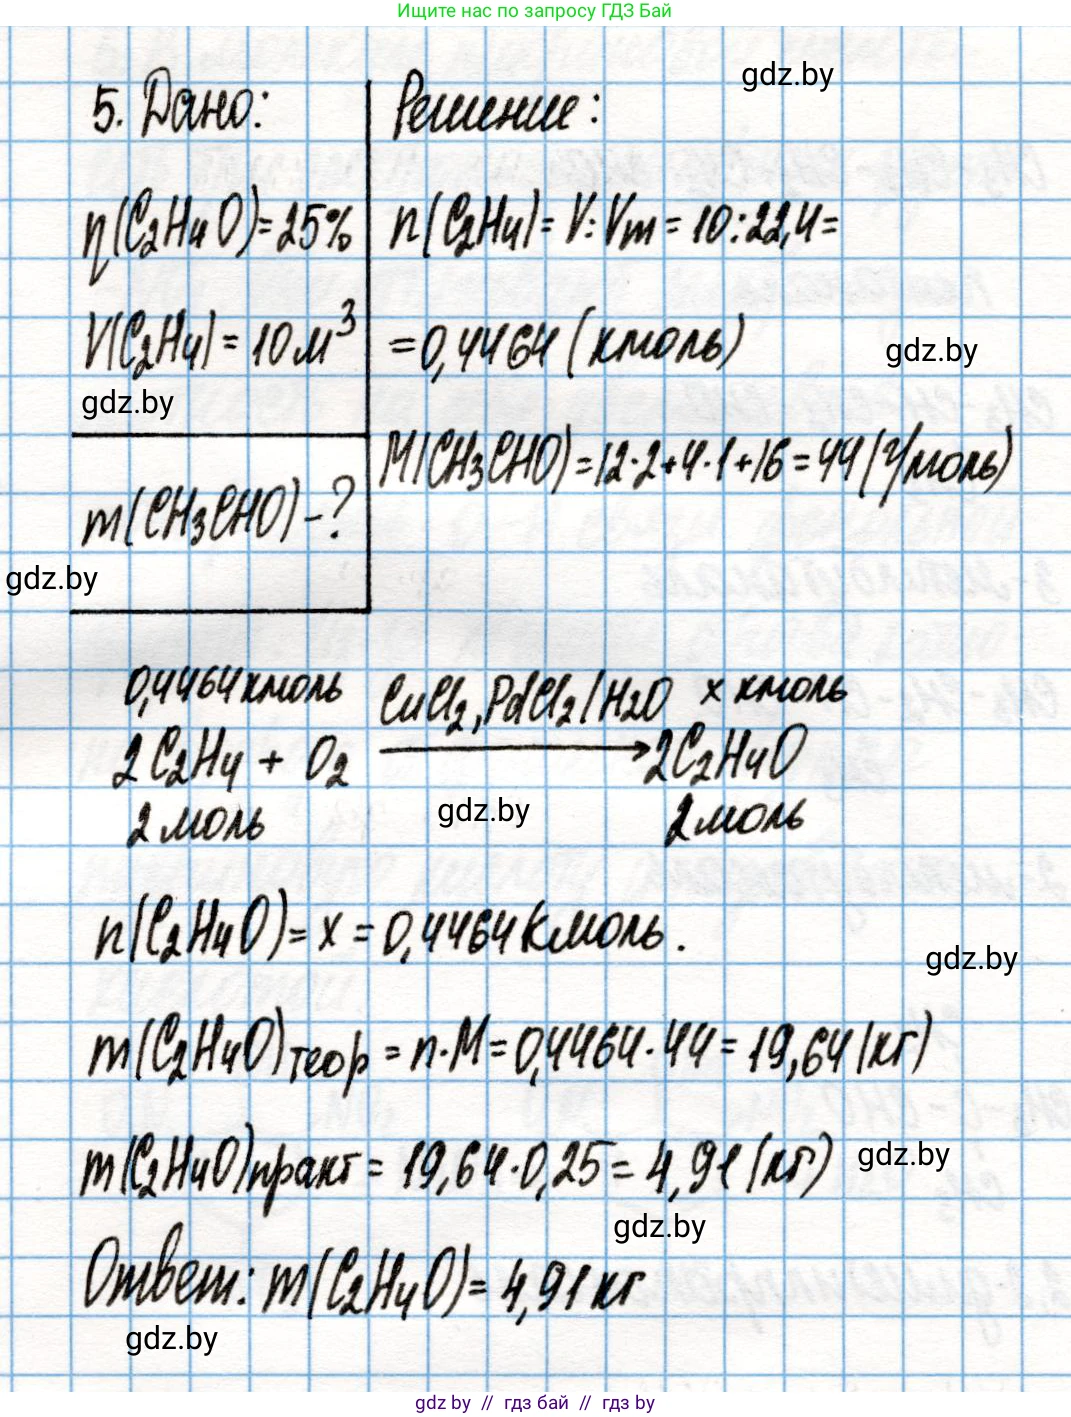 Ищите нас по запросу ГДЗ Бай
gdz.by
5. Дано:
η(C₂H₄O)=25%
V(C₂H₄)=10м³
gdz.by
m(CH₃CHO)-?
gdz.by
Решение:
n(C₂H₄)=V:Vm=10:22,4=
=0,4464(кмоль)
gdz.by
M(CH₃CHO)=12·2+4·1+16=44(г/моль)
0,4464кмоль CuCl₂,PdCl₂/H₂O x кмоль
2C₂H₄ + O₂ → 2C₂H₄O
2моль gdz.by 2моль
n(C₂H₄O)=x=0,4464кмоль.
gdz.by
m(C₂H₄O)теор=n·M=0,4464·44=19,64(кг)
m(C₂H₄O)практ=19,64·0,25=4,91(кг)
gdz.by
gdz.by
Ответ: m(C₂H₄O)=4,91кг
gdz.by
gdz by // гдз бай // гдз by